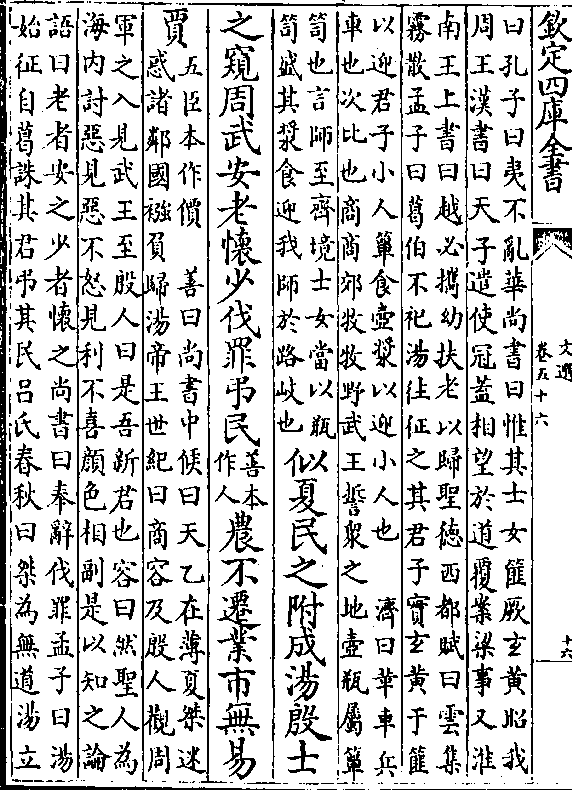 欽定四庫全書
文選
卷五十六
十六
曰孔子曰夷不亂華尚書曰惟其士女篚厥玄黃昭我
周王漢書曰天子遣使冠蓋相望於道覆案梁事又淮
南王上書曰越必攜幼扶老以歸聖德西都賦曰雲集
霧散孟子曰葛伯不祀湯往征之其君子實玄黃于篚
以迎君子小人簞食壺漿以迎小人也　濟曰華車兵
車也次比也商商郊牧牧野武王誓衆之地壺瓶屬簞
笥也言師至齊境士女當以瓶
笥盛其漿食迎我師於路歧也
似夏民之附成湯殷士
之窺周武安老懷少伐罪弔民
善本
作人
農不遷業市無易
賈
五臣本作價　善曰尚書中候曰天乙在薄夏桀迷
惑諸鄰國襁負歸湯帝王世紀曰商容及殷人觀周
軍之入見武王至殷人曰是吾新君也容曰然聖人為
海内討惡見惡不怒見利不喜顔色相副是以知之論
語曰老者安之少者懷之尚書曰奉辭伐罪孟子曰湯
始征自葛誅其君弔其民吕氏春秋曰桀為無道湯立